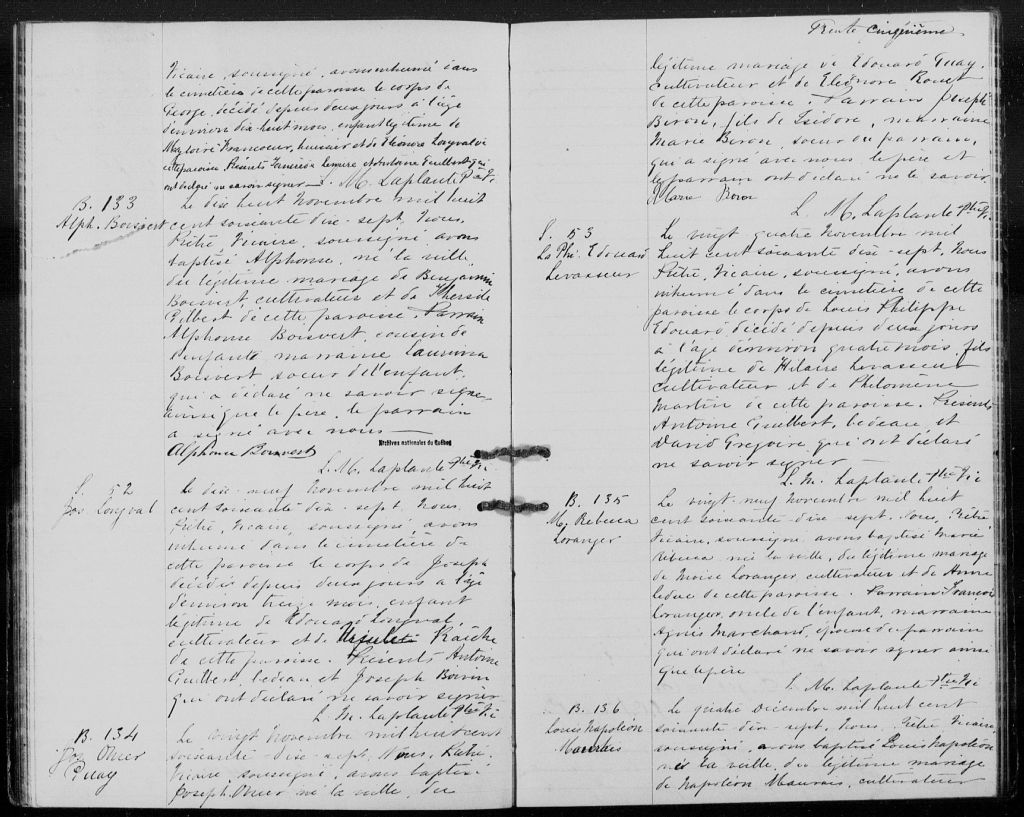 Vicaire, soussigné, avons inhumé dans
le cimetière de cette paroisse le corps de
George, décédé depuis deux jours à l'âge
d'environ dix-huit mois, enfant légitime de
Magloire Francoeur, huissier et de Eléonore Longval de
cette paroisse. Présents
ont déclaré ne savoir signer. M. Laplante Ptre Vi
B. 133
Alph. Boisvert
Le dix huit Novembre mil huit
cent soixante dix-sept, Nous,
Prêtre, Vicaire, soussigné avons
baptisé Alphonse, né la veille,
du légitime mariage de Benjamin
Boisvert, cultivateur et de Thersile
Gilbert de cette paroisse. Parrain
Alphonse Boisvert, cousin de
l'enfant, marraine
Boisvert, soeur de l'enfant,
qui a déclaré ne savoir signer
ainsi que le père, le parrain
a signé avec nous
Alphonse Boisvert
Archives nationales du Québec
L. M. Laplante Ptre Vi
S. 52
Jos. Longval
Le dix-neuf Novembre mil huit
cent soixante dix-sept, Nous,
Prêtre, Vicaire, soussigné avons
inhumé dans le cimetière de
cette paroisse le corps de Joseph
décédé depuis deux jours à l'âge
d'environ treize mois, enfant
légitime de Edouard Longval,
cultivateur et de Raiche
de cette paroisse. Présents Antoine
Guilbert, bedeau et Joseph
qui ont déclaré ne savoir signer
L. M. Laplante Ptre Vi
B. 134
Jos. Omer
Quay
Le vingt novembre mil huit cent
soixante dix sept, Nous, Prêtre
Vicaire, soussigné, avons baptisé
Joseph Omer né la veille, du
Trente cinquième
légitime mariage de Edouard Quay,
cultivateur et de Eléonore
de cette paroisse. Parrain Joseph
Biron, fils de Isidore, marraine
Marie Biron, soeur du parrain,
qui a signé avec nous le père et
le parrain ont déclaré ne le savoir
Marie Biron
L. M. Laplante Ptre Vi
S. 53
Ls Phi. Edouard
Levasseur
Le vingt quatre Novembre mil
huit cent soixante dix-sept, Nous
Prêtre, Vicaire, soussigné, avons
inhumé dans le cimetière de cette
paroisse le corps de Louis Philippe
Edouard décédé depuis deux jours
à l'âge d'environ quatre mois, fils
légitime de Hilaire Levasseur
cultivateur et de Philomène
Martin de cette paroisse. Présents
Antoine Guilbert, bedeau et
David Gregoire qui ont déclaré
ne savoir signer
L. M. Laplante Ptre Vic
B. 135
M. Rebecca
Loranger
Le vingt-neuf Novembre mil huit
cent soixante dix sept. Nous, Prêtre,
Vicaire, soussigné avons baptisé Marie
Rebecca née la veille, du légitime mariage
de Moise Loranger cultivateur et de Anne
Leduc de cette paroisse. Parrain François
Loranger, oncle de l'enfant, marraine
Agnès Marchand, épouse du parrain
qui ont déclaré ne savoir signer ainsi
que le père
L. M. Laplante Ptre Vi
B. 136
Louis Napoléon
Mauvais
Le quatre Décembre mil huit cent
soixante dix sept, Nous, Prêtre Vicaire
soussigné, avons baptisé Louis Napoléon
né la veille, du légitime mariage
de Napoléon Mauvais, cultivateur